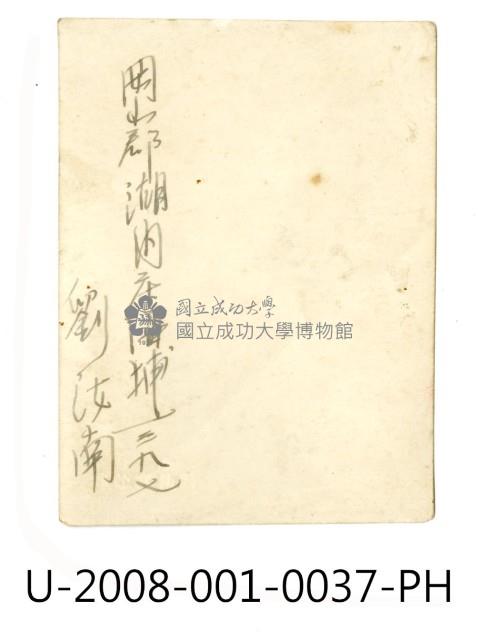 岡山郡湖内庄海埔 九七
劉汝南
國立成功大學
國立成功大學博物館
U-2008-001-0037-PH